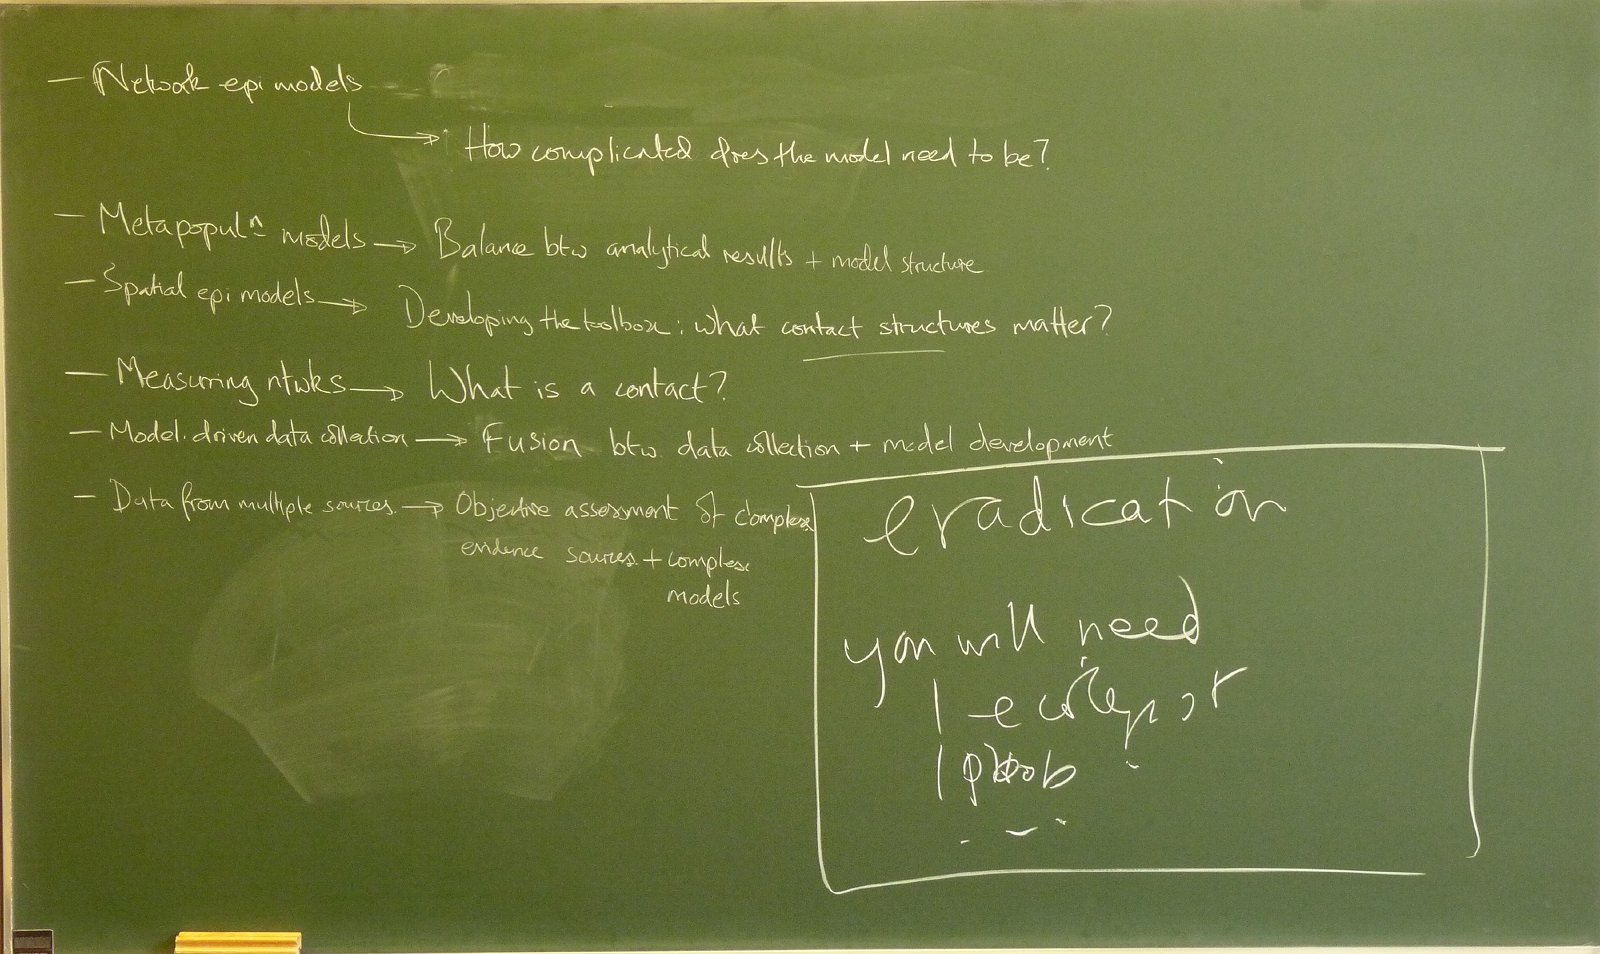 — Network epi models
→ How complicated does the model need to be?
— Metapopulⁿ models → Balance btw analytical results + model structure
— Spatial epi models → Developing the toolbox: what contact structures matter?
— Measuring ntwks → What is a contact?
— Model-driven data collection → Fusion btw data collection + model development
— Data from multiple sources → Objective assessment of complex
evidence sources + complex
models
eradication
you will need
1
1